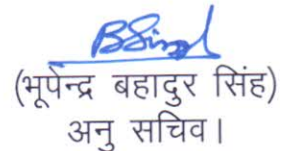 BSingh
(भूपेन्द्र बहादुर सिंह)
अनु सचिव।